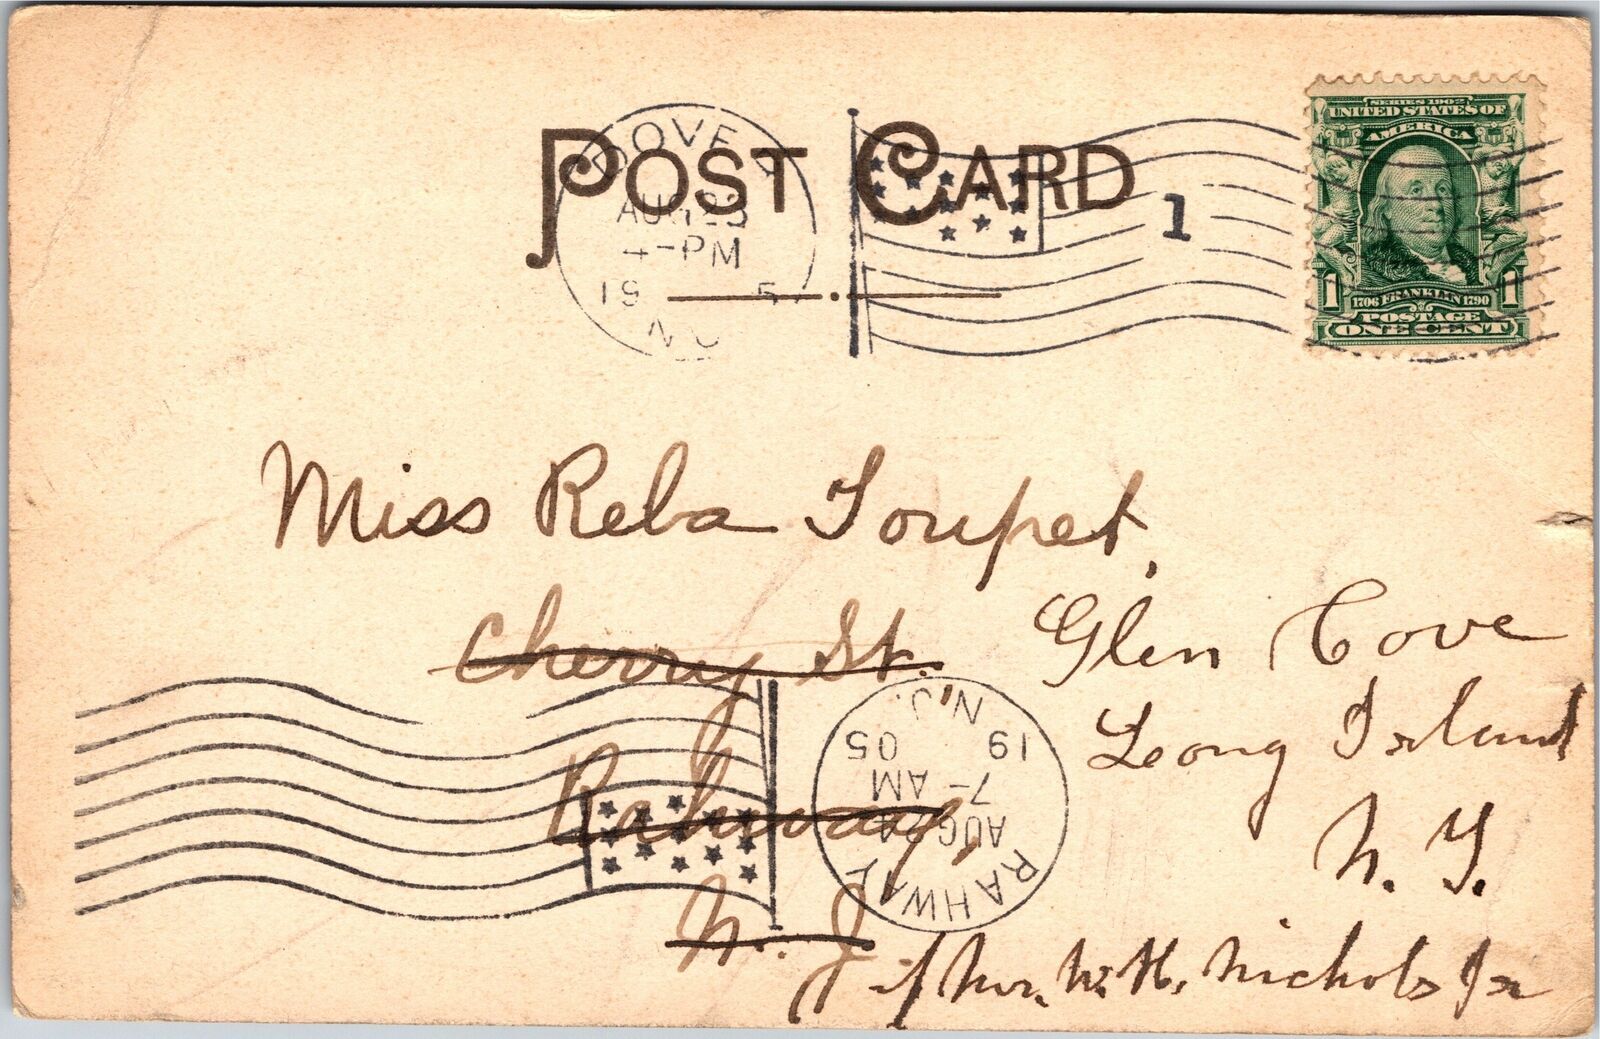 POST CARD
DOVER
AUG 23
4-PM
19 5
N J
1
SERIES 1902
UNITED STATES OF
AMERICA
1 1706 FRANKLIN 1790 1
POSTAGE
ONE CENT
Miss Reba Toupet,
Cherry St.
Rahway,
N. J.
Glen Cove
Long Island
N. Y.
c/ Mr. W. H. Nichols Jr
RAHWAY N.J.
AUG 24
7-AM
19 05